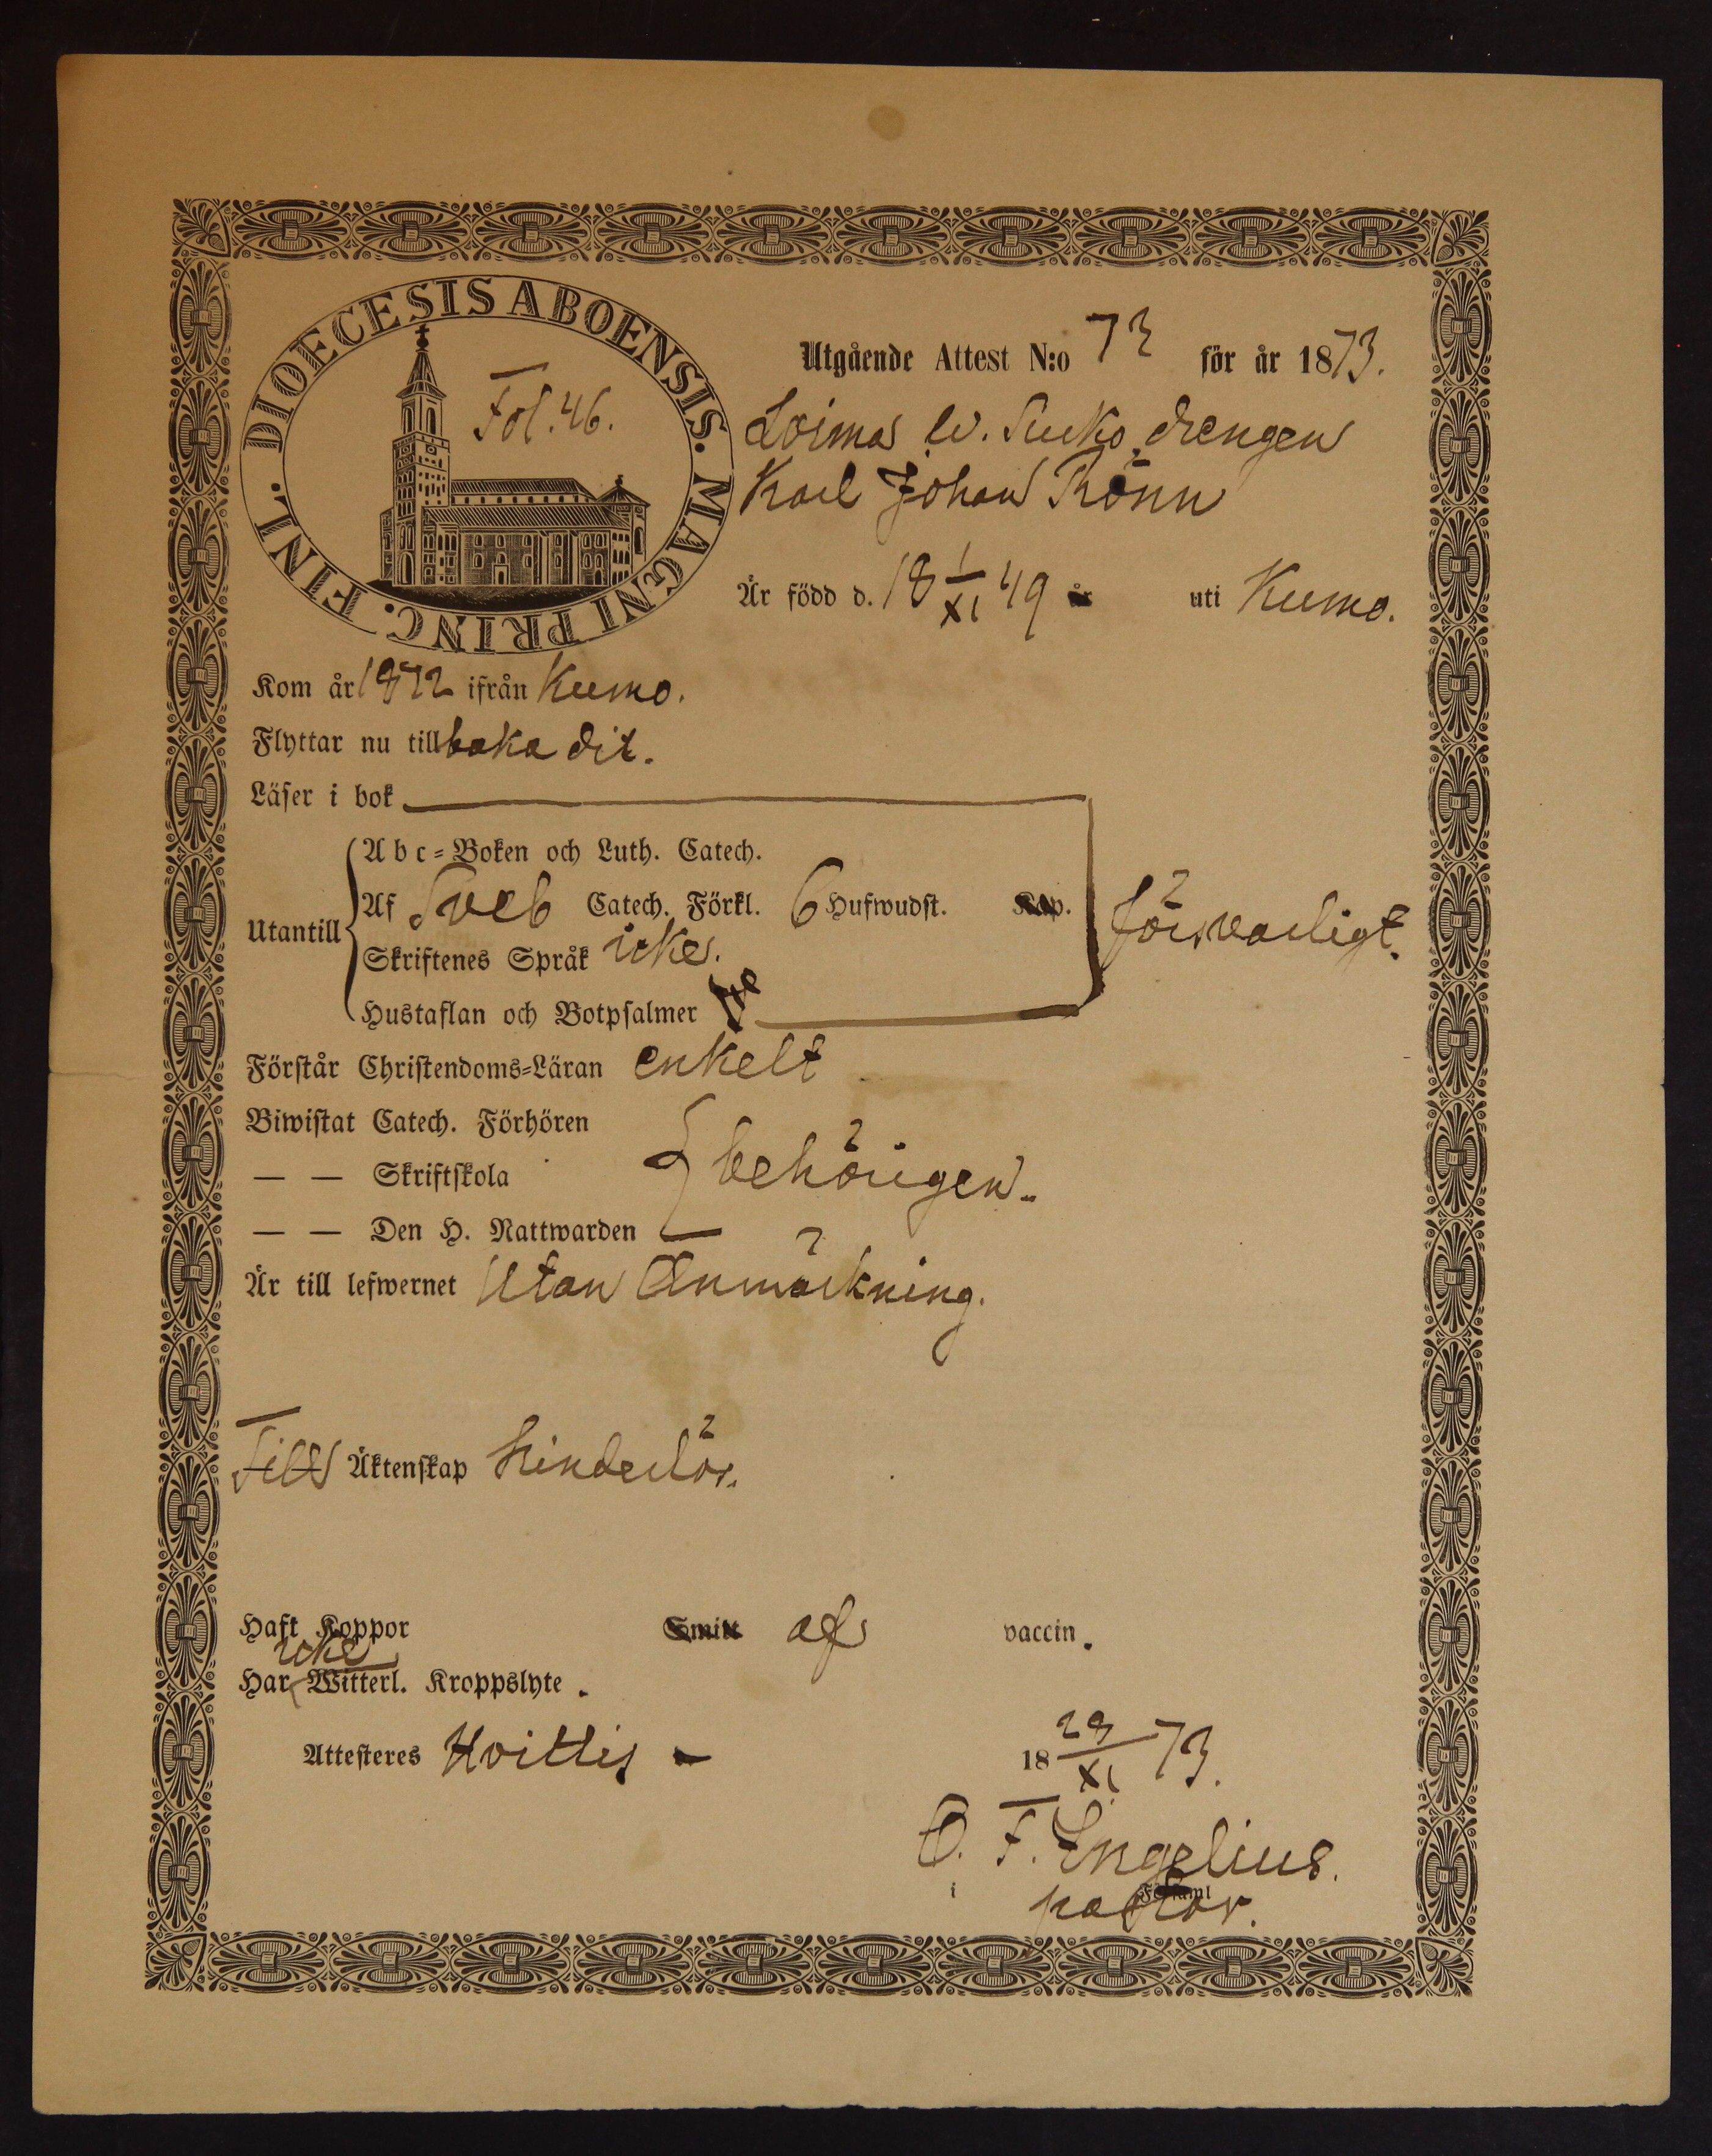 DIOECESIS ABOENSIS. MAGNI PRINC. FINL.
Fol. 46.
Utgående Attest N:o 73 för år 1873.
Loimas by. Suko drengen
Karl Johan Rönn
Är född d. 18 1/XI 49 år uti Kumo.
Kom år 1872 ifrån Kumo.
Flyttar nu tillbaka dit.
Läser i bok
Utantill
Abc=Boken och Luth. Catech.
Af Sveb Catech. Förkl. 6 Hufwudst. Kap.
Skriftenes Språk icke.
Hustaflan och Botpsalmer
försvarligt.
Förstår Christendoms=Läran enkelt
Biwistat Catech. Förhören
— — Skriftskola behörigen.
— — Den H. Nattwarden
Är till lefwernet Utan Anmärkning.
Till Äktenskap hinderlös.
Haft Koppor Smitt af vaccin.
icke
Har Witterl. Kroppslyte.
Attesteres Hvittis 18 29/XI 73.
O. F. Engelius.
i Församl
pastor.